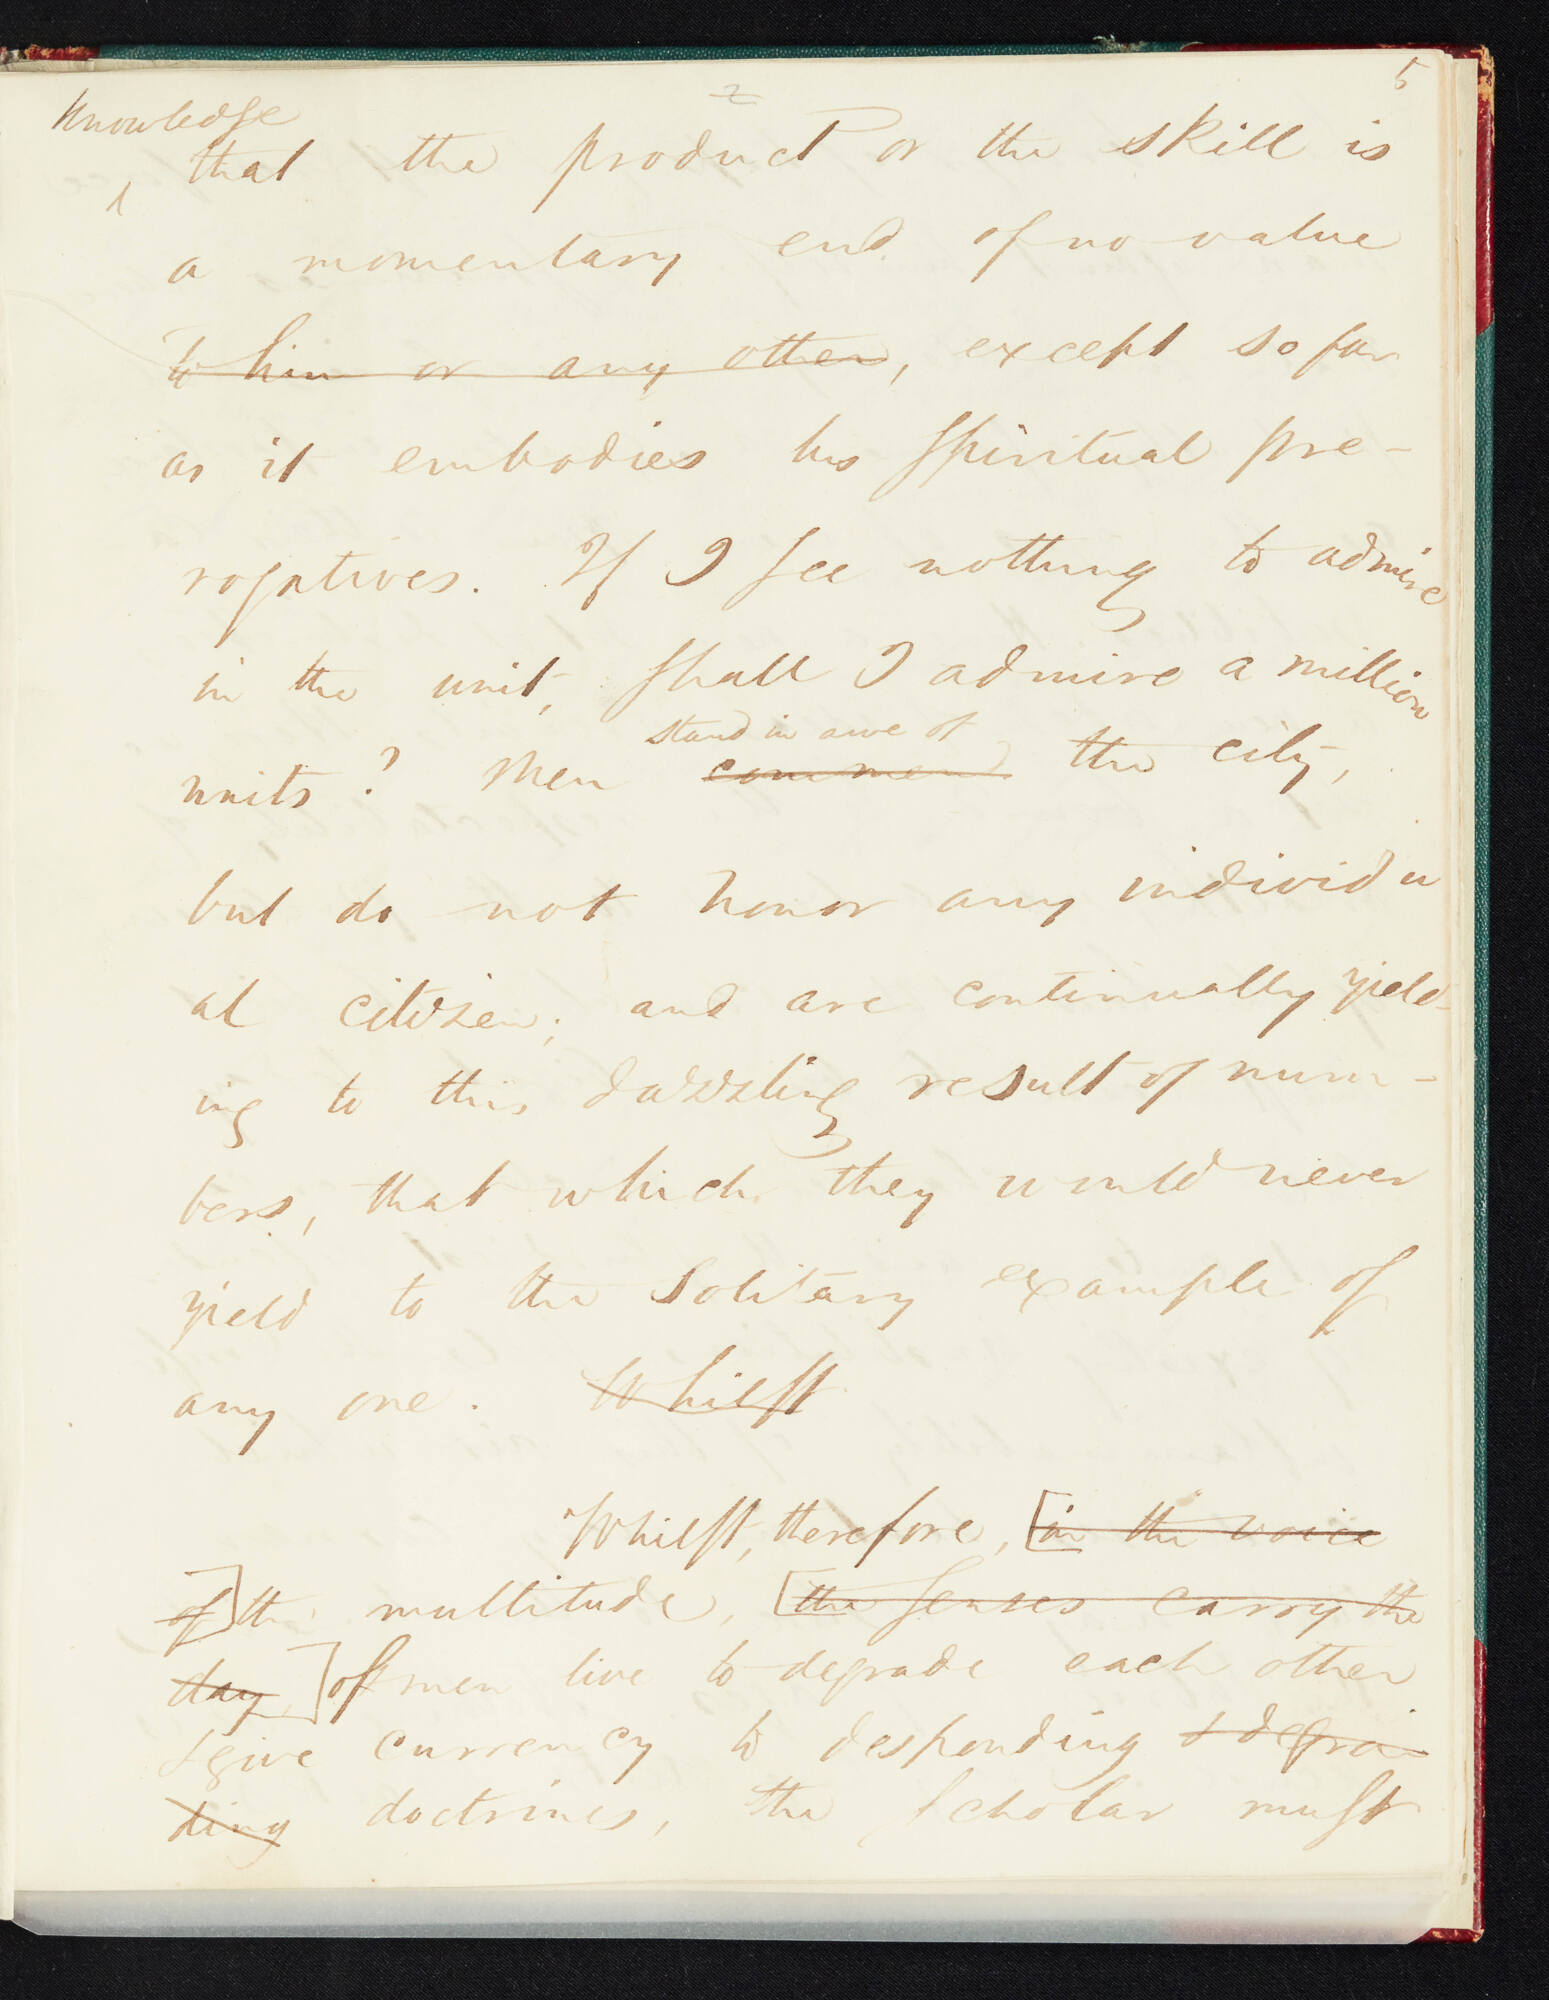 5
2
Knowledge
that the product or the skill is
a momentary end of no value
to him or any other, except so far
as it embodies his spiritual pre-
rogatives. If I see nothing to admire
in the unit, shall I admire a million
stand in awe of
units? Men commend the city,
but do not honor any individu
al citizen; and are continually yield-
ing to this dazzling result of num-
bers, that which they would never
yield to the solitary example of
any one. Whilst
Whilst, therefore, [in the voice
of] the multitude, [the senses carry the
day,] of men live to degrade each other
& give currency to desponding & degra
ding doctrines, the scholar must